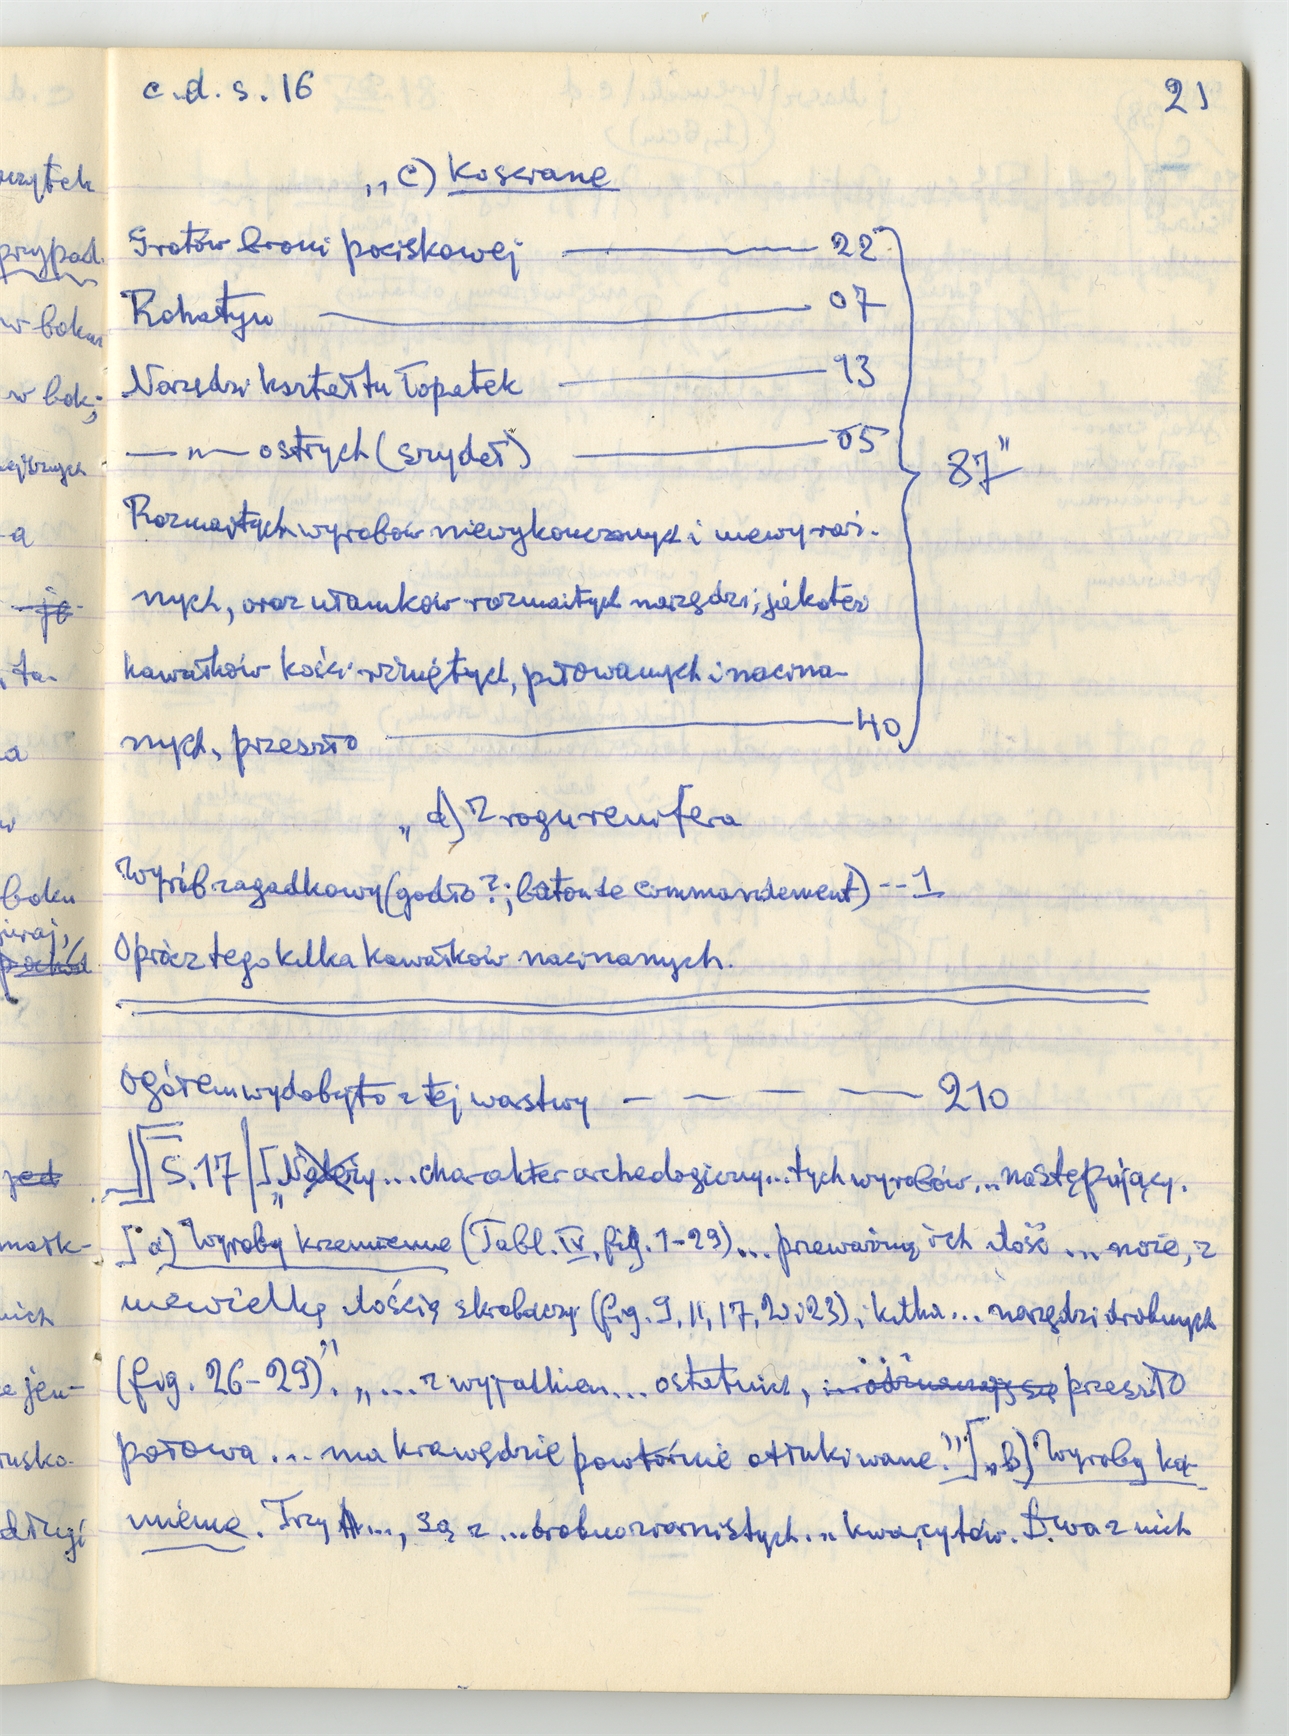 c.d. s. 16 21
„c) Kościane
Grotów broni pociskowej — 22
Rohatyn — 07
Narzędzi kształtu łopatek — 13
— „ — ostrych (szydeł) — 05
87"
Rozmaitych wyrobów niewykończonych i niewyraź-
nych, oraz ułamków rozmaitych narzędzi, jakoteż
kawałków kości rzniętych, piłowanych i nacina-
nych, przeszło — 40
„d) Z rogu renifera
Wyrób zagadkowy (godło?; bâton de commandement) -- 1
Oprócz tego kilka kawałków nacinanych.
Ogółem wydobyto z tej warstwy — — — — 210
S. 17 | [„Należy ... charakter archeologiczny ... tych wyrobów ... następujący.
[„a) Wyroby krzemienne (Tabl. IV, fig. 1-29) ... przeważną ich ilość ... noże, z
niewielką ilością skrobaczy (fig. 9, 11, 17, 20 i 23), i kilka ... narzędzi drobnych
(fig. 26-29)". „... z wyjątkiem ... ostatnich, przeszło
połowa ... ma krawędzie powtórnie otłukiwane."] „B) Wyroby ka-
mienne. Trzy ..., są z ... drobnoziarnistych ... kwarcytów. Dwa z nich
uzytek
przypad.
w boku
w bok;
a
je
ta-
a
boku
pochód
jest
nich
że jen-